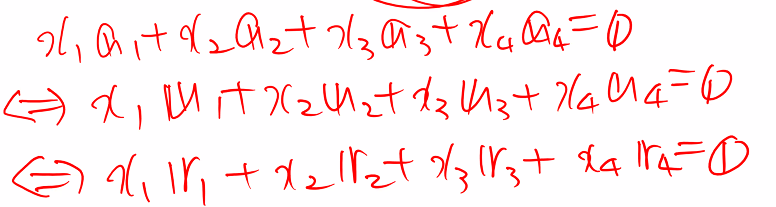 x₁𝕒₁+x₂𝕒₂+x₃𝕒₃+x₄𝕒₄=𝟘
⇔ x₁𝕦₁+x₂𝕦₂+x₃𝕦₃+x₄𝕦₄=𝟘
⇔ x₁𝕣₁+x₂𝕣₂+x₃𝕣₃+x₄𝕣₄=𝟘